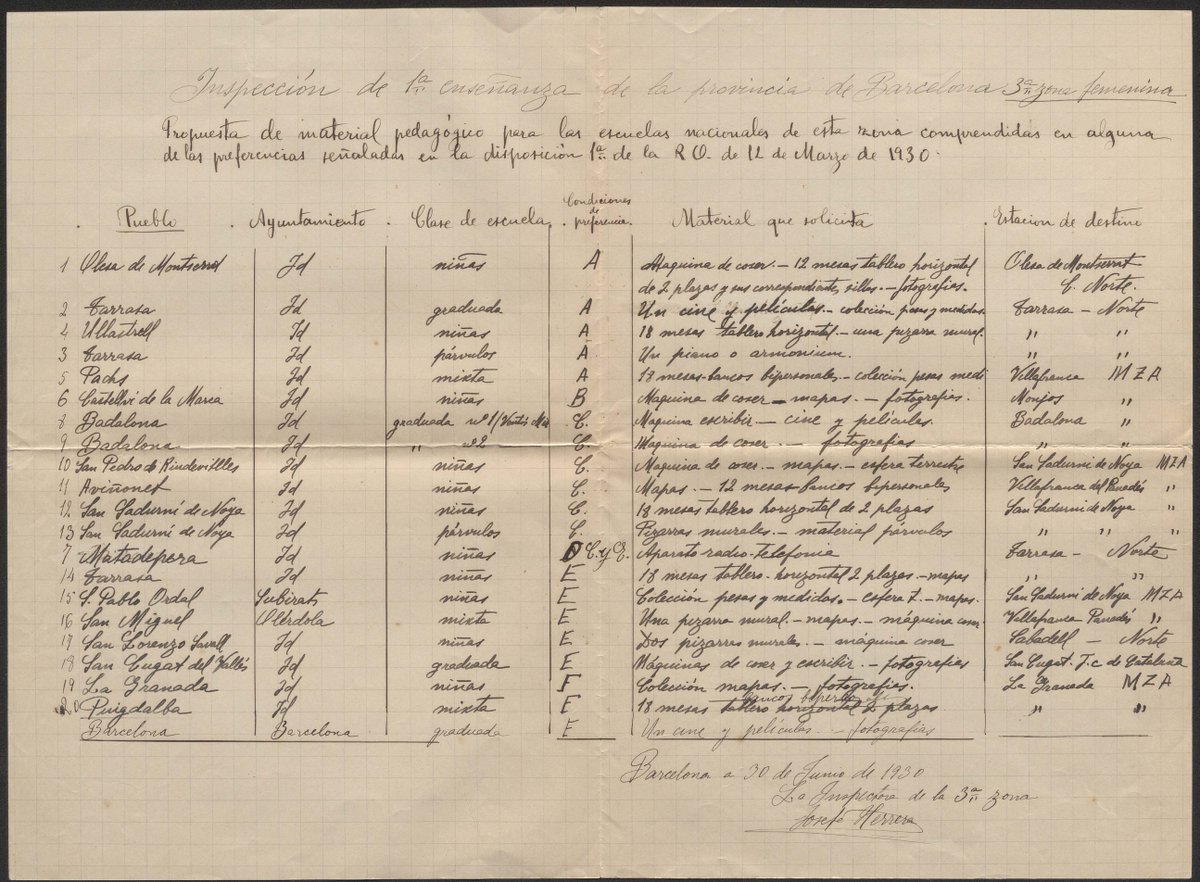 Inspección de 1ª enseñanza de la provincia de Barcelona 3ª zona femenina
Propuesta de material pedagógico para las escuelas nacionales de esta zona comprendidas en alguna
de las preferencias señaladas en la disposición 1ª de la R.O. de 12 de Marzo de 1930.
Pueblo Ayuntamiento Clase de escuela Condiciones de preferencia Material que solicita Estacion de destino
1 Olesa de Montserrat Id niñas A Maquina de coser. - 12 mesas tablero horizontal Olesa de Montserrat
de 2 plazas y sus correspondientes sillas. - fotografias. C. Norte.
2 Tarrasa Id graduada A Un cine y películas. - colección pesas y medidas. Tarrasa - Norte
4 Ullastrell Id niñas A 18 mesas tablero horizontal. - una pizarra mural. " "
3 Tarrasa Id párvulos A Un piano o armonium. " "
5 Pachs Id mixta A 18 mesas-bancos bipersonales. - colección pesas medi Villafranca MZA
6 Castellvi de la Marca Id niñas B Maquina de coser - mapas. - fotografias. Monjos "
8 Badalona Id graduada nº 1/ C. Maquina escribir - cine y películas. Badalona "
9 Badalona Id " nº 2 C. Maquina de coser. - fotografias " "
10 San Pedro de Riudevitlles Id niñas C. Maquina de coser. - mapas. - esfera terrestre San Sadurni de Noya MZA
11 Aviñonet Id niñas C. Mapas. - 12 mesas-bancos bipersonales Villafranca del Panadés "
12 San Sadurni de Noya Id niñas C. 18 mesas tablero horizontal de 2 plazas San Sadurni de Noya "
13 San Sadurní de Noya Id párvulos C. Pizarras murales. - material párvulos " " "
7 Matadepera Id niñas D C. y E. Aparato radio-telefonia Tarrasa - Norte
14 Tarrasa Id niñas E 18 mesas tablero-horizontal 2 plazas - mapas " "
15 S. Pablo Ordal Subirats niñas E Colección pesas y medidas. - esfera T. - mapas. San Sadurni de Noya MZA
16 San Miguel Olérdola mixta E Una pizarra mural. - mapas. - máquina coser. Villafranca Panadés "
17 San Lorenzo Savall Id niñas E Dos pizarras murales. - máquina coser Sabadell - Norte
18 San Cugat del Vallés Id graduada E Máquinas de coser y escribir. - fotografias San Cugat. F. c de Cataluña
19 La Granada Id niñas F Colección mapas. - fotografias. La Granada MZA
bancos
20 Puigdalba Id mixta E 18 mesas tablero horizontal 2 plazas " "
Barcelona Barcelona graduada E Un cine y películas. - fotografias
Barcelona a 30 de Junio de 1930
La Inspectora de la 3ª zona
Josefa Herrera